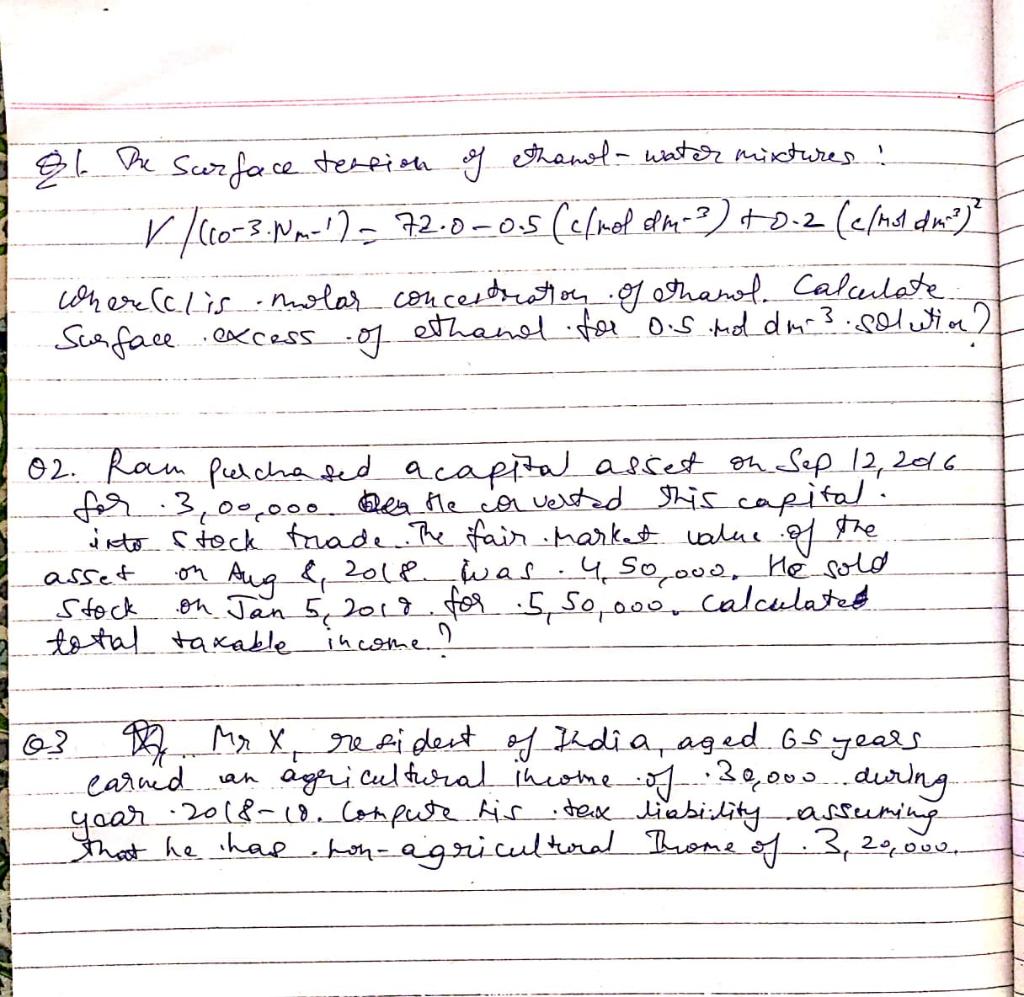 Q1. The Surface tension of ethanol - water mixtures :
V/(10-3.Nm-1) = 72.0 - 0.5 (c/mol dm-3) + 0.2 (c/mol dm-3)2
where (c) is . molar concentration of ethanol. Calculate
Surface excess of ethanol for 0.5 mol dm-3 solution?
Q2. Ram purchased a capital asset on Sep 12, 2016
for 3,00,000. He converted this capital.
into Stock trade. The fair market value of the
asset on Aug 8, 2018. was . 4,50,000. He sold
Stock on Jan 5, 2019. for 5,50,000. Calculated
total taxable income?
Q3 Mr X, resident of India, aged 65 years
earned an agricultural income of 30,000 during
year 2018-18. Compute his tax liability assuming
that he has non-agricultural Income of 3,20,000.